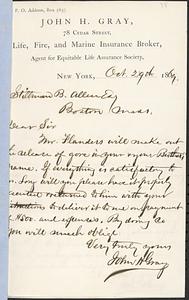 P. O. Address, Box
JOHN H. GRAY,
78 CEDAR STREET,
Life, Fire, and Marine Insurance Broker,
Agent for Equitable Life Assurance Society,
NEW YORK, Oct. 29th 1869.
Stillman B. Allen Esq
Boston Mass.
Dear Sir
Mr. Flanders will make out
the release of
name. If everything is satisfactory to
you will you please have it properly
executed welcome to him with your
to deliver it to me on payment
and expenses. By doing so
you will much oblige
Very truly yours
John H Gray